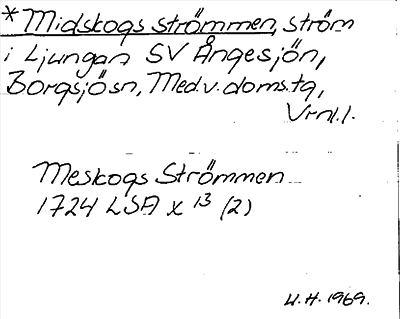 *Midskogs strömmen, ström
i Ljungan SV Ångesjön,
Borgsjösn, Medv. doms.tg,
Vrnl.l.
Meskogs Strömmen
1724 LSA X 13 (2)
U.H. 1969.